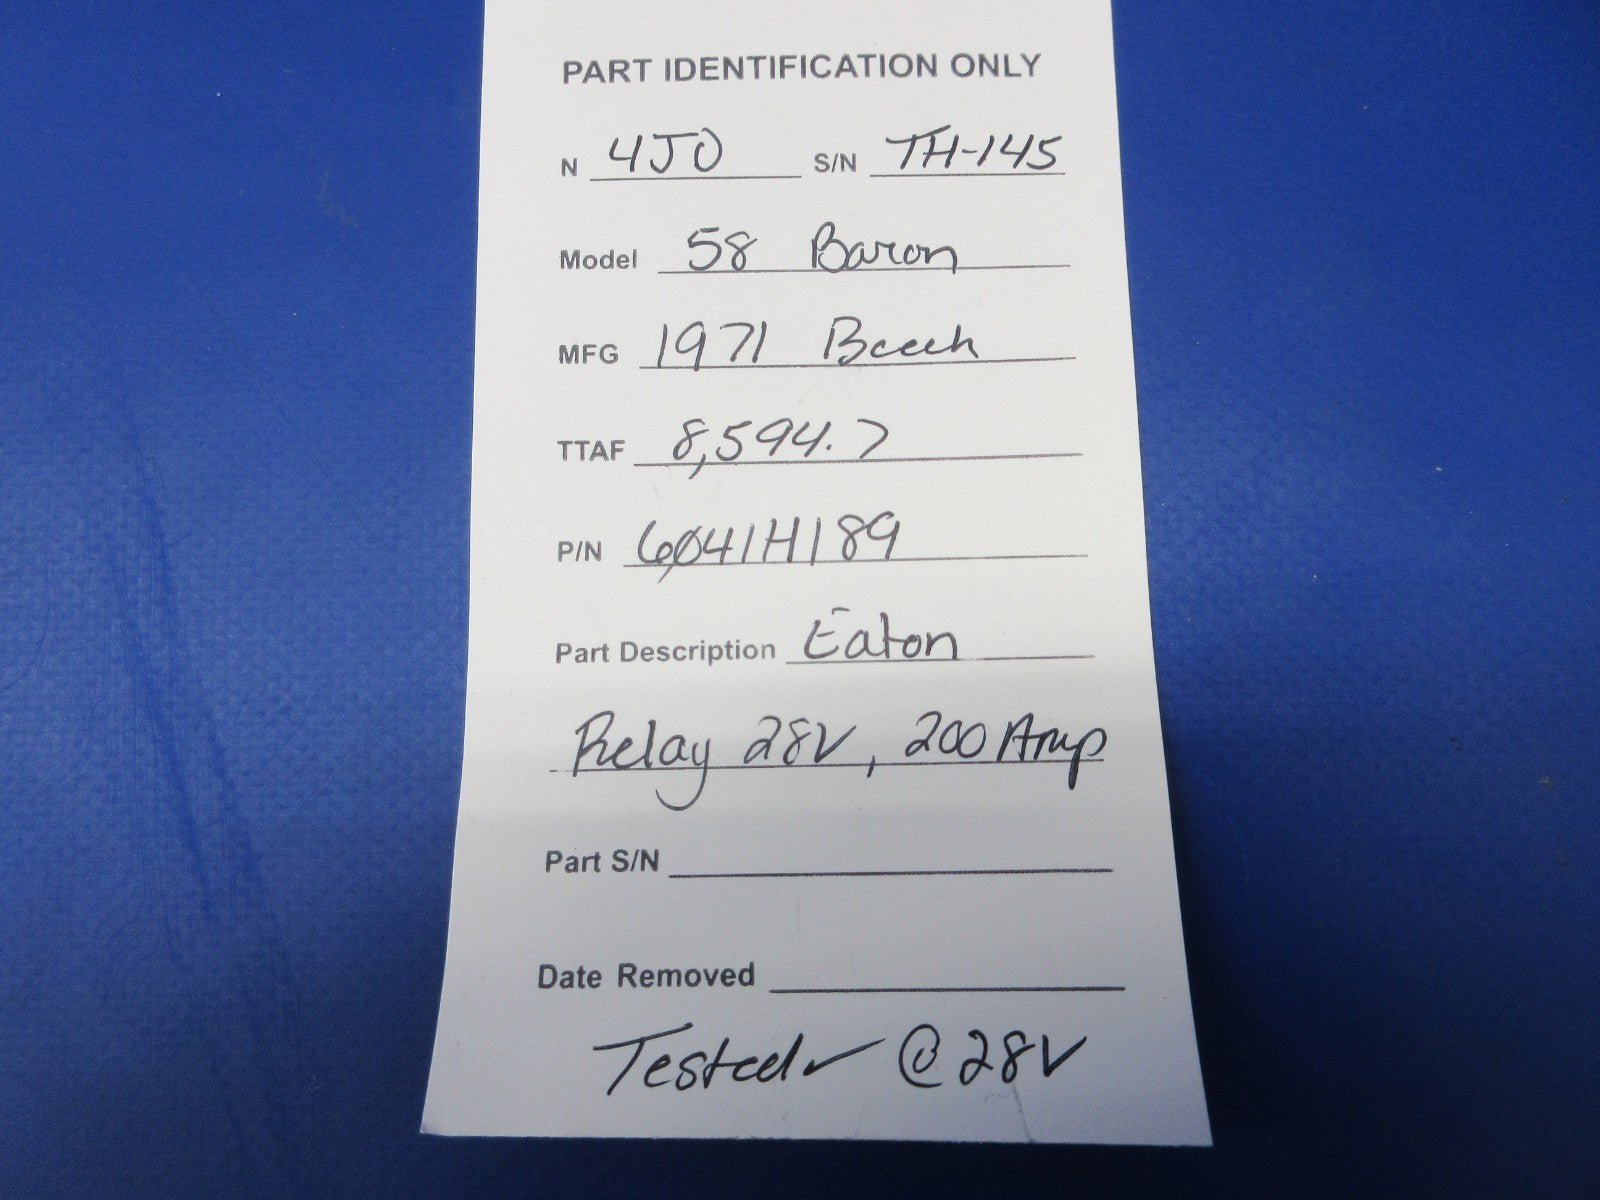 PART IDENTIFICATION ONLY
N 4JO S/N TH-145
Model 58 Baron
MFG 1971 Beech
TTAF 8,594.7
P/N 6041H189
Part Description Eaton
Relay 28V, 200 Amp
Part S/N
Date Removed
Tested ✓ @ 28V